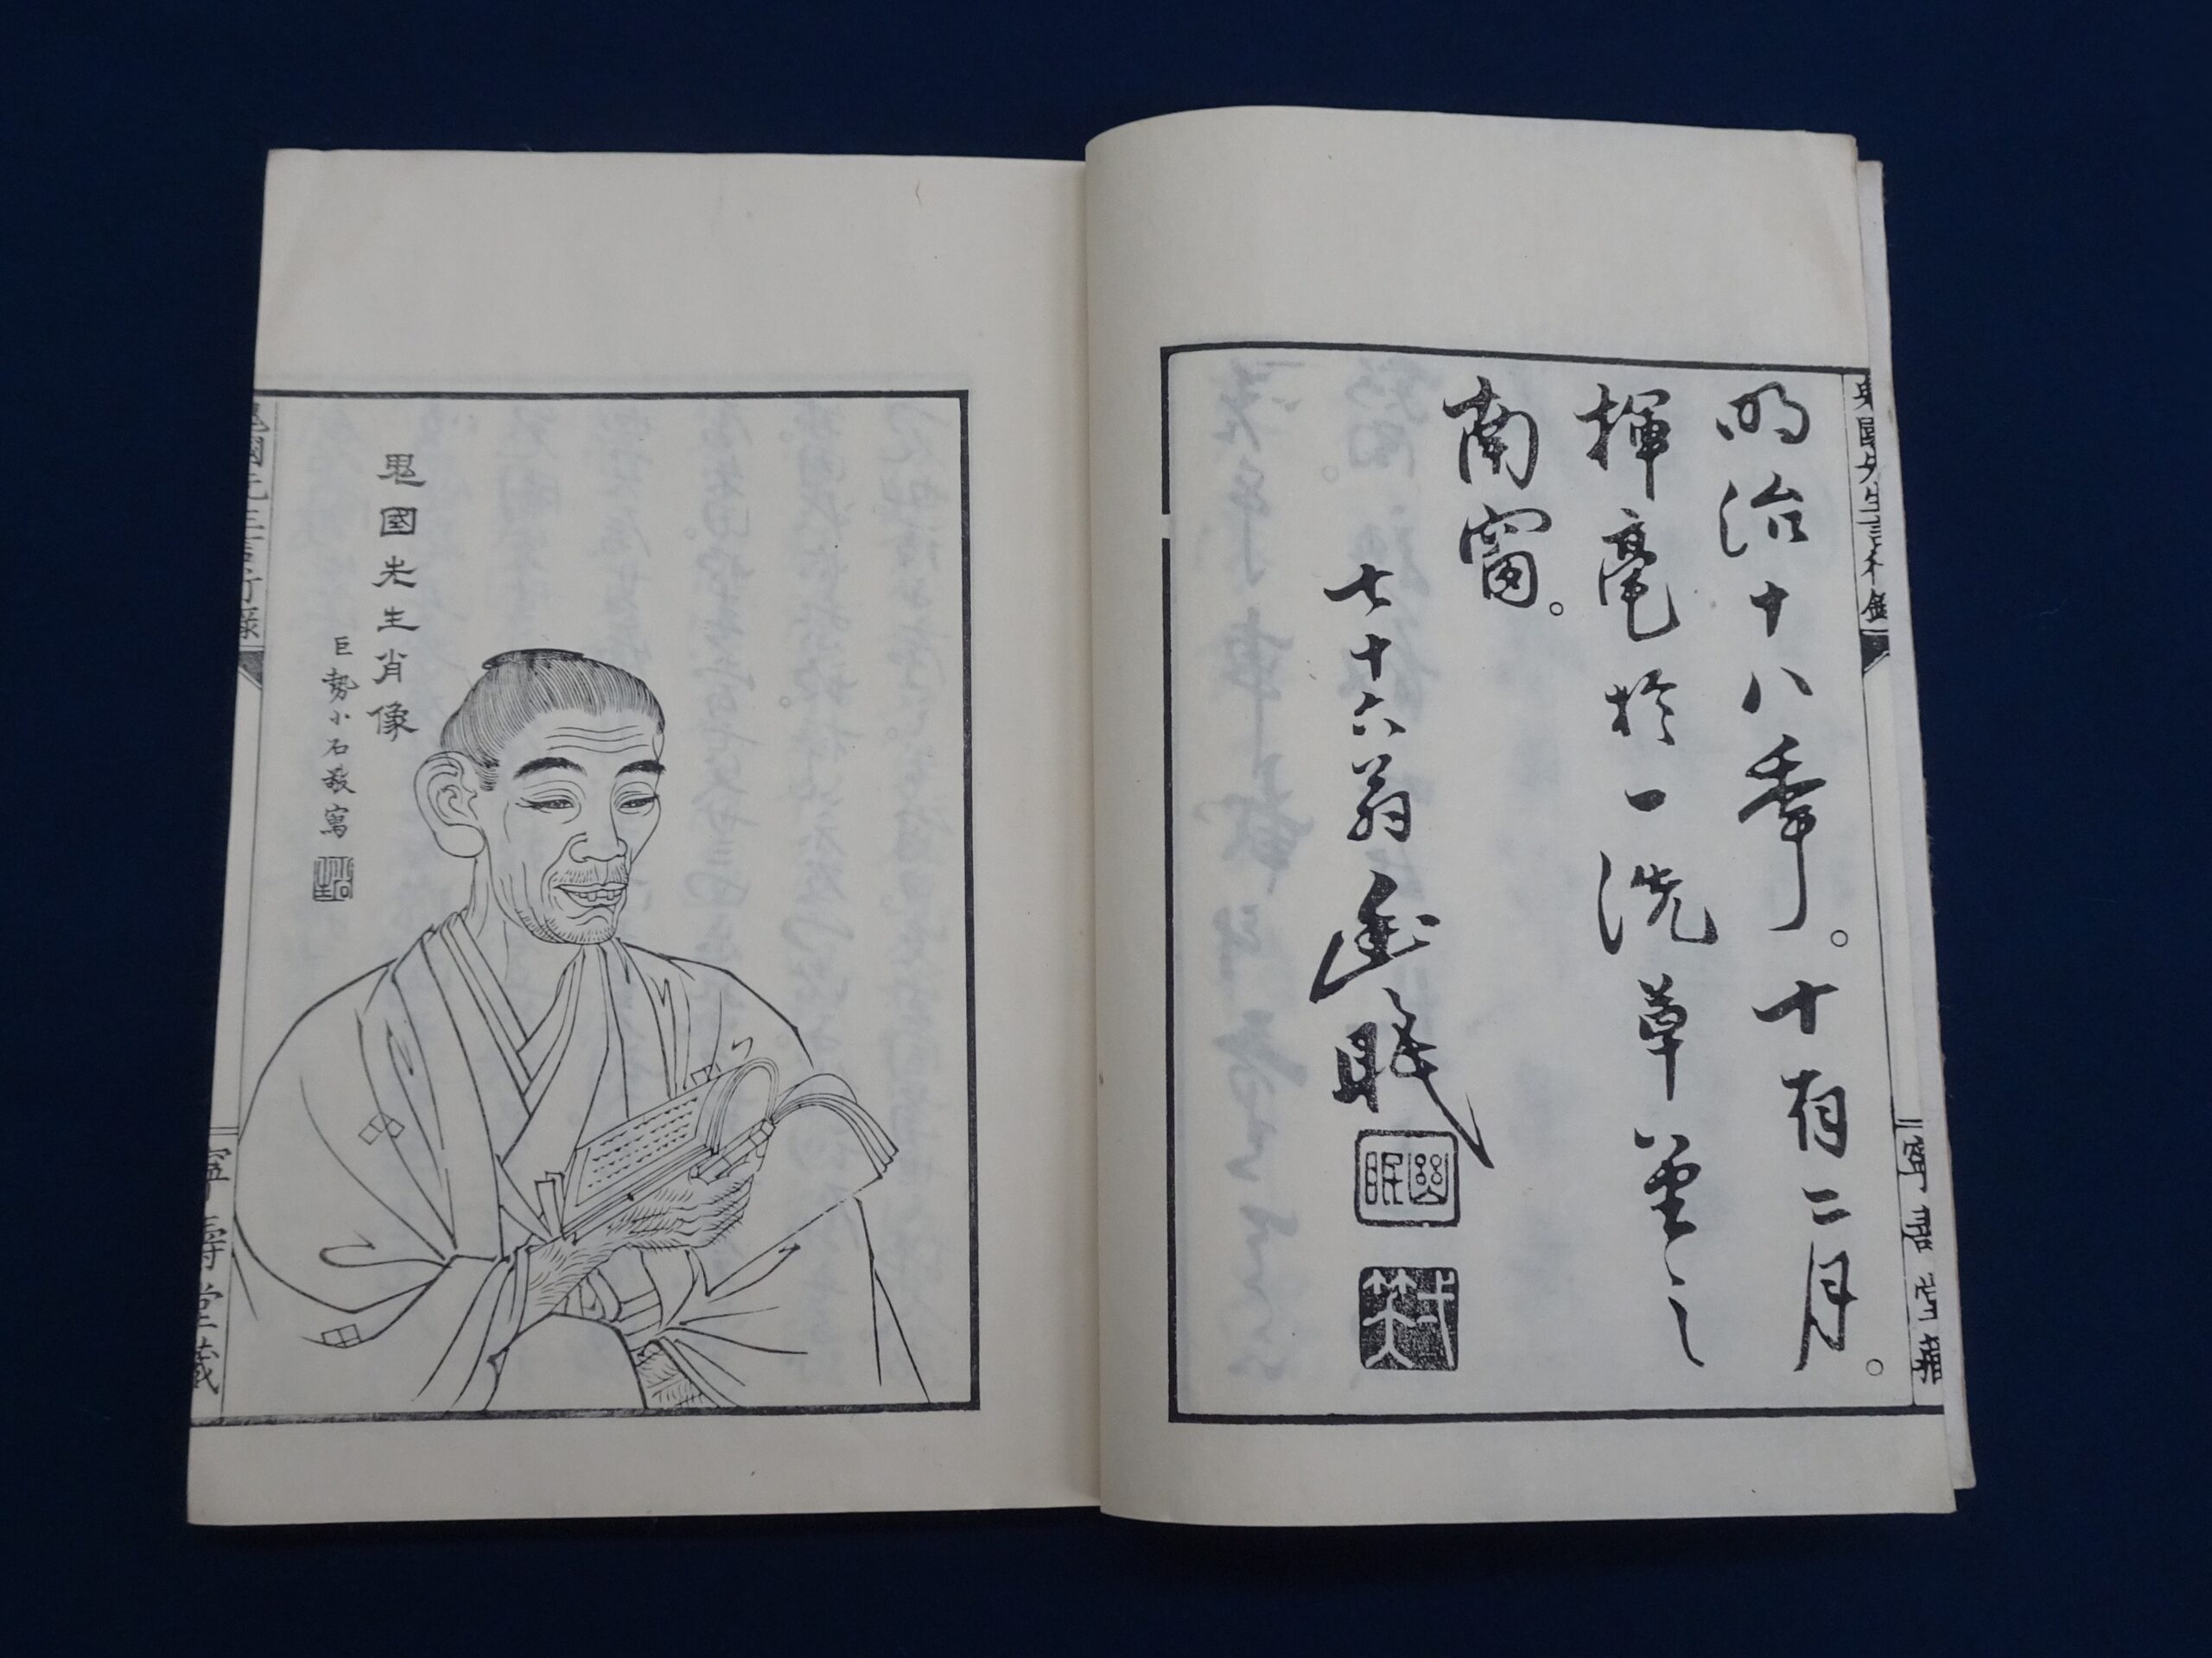 鬼國先生言行錄
寧壽堂藏
明治十八秊。十有二月。
揮毫於一洗草堂之
南窗。
七十六翁幽眠
幽眠
鬼國先生肖像
巨勢小石敬寫
鬼國先生言行錄
寧壽堂藏